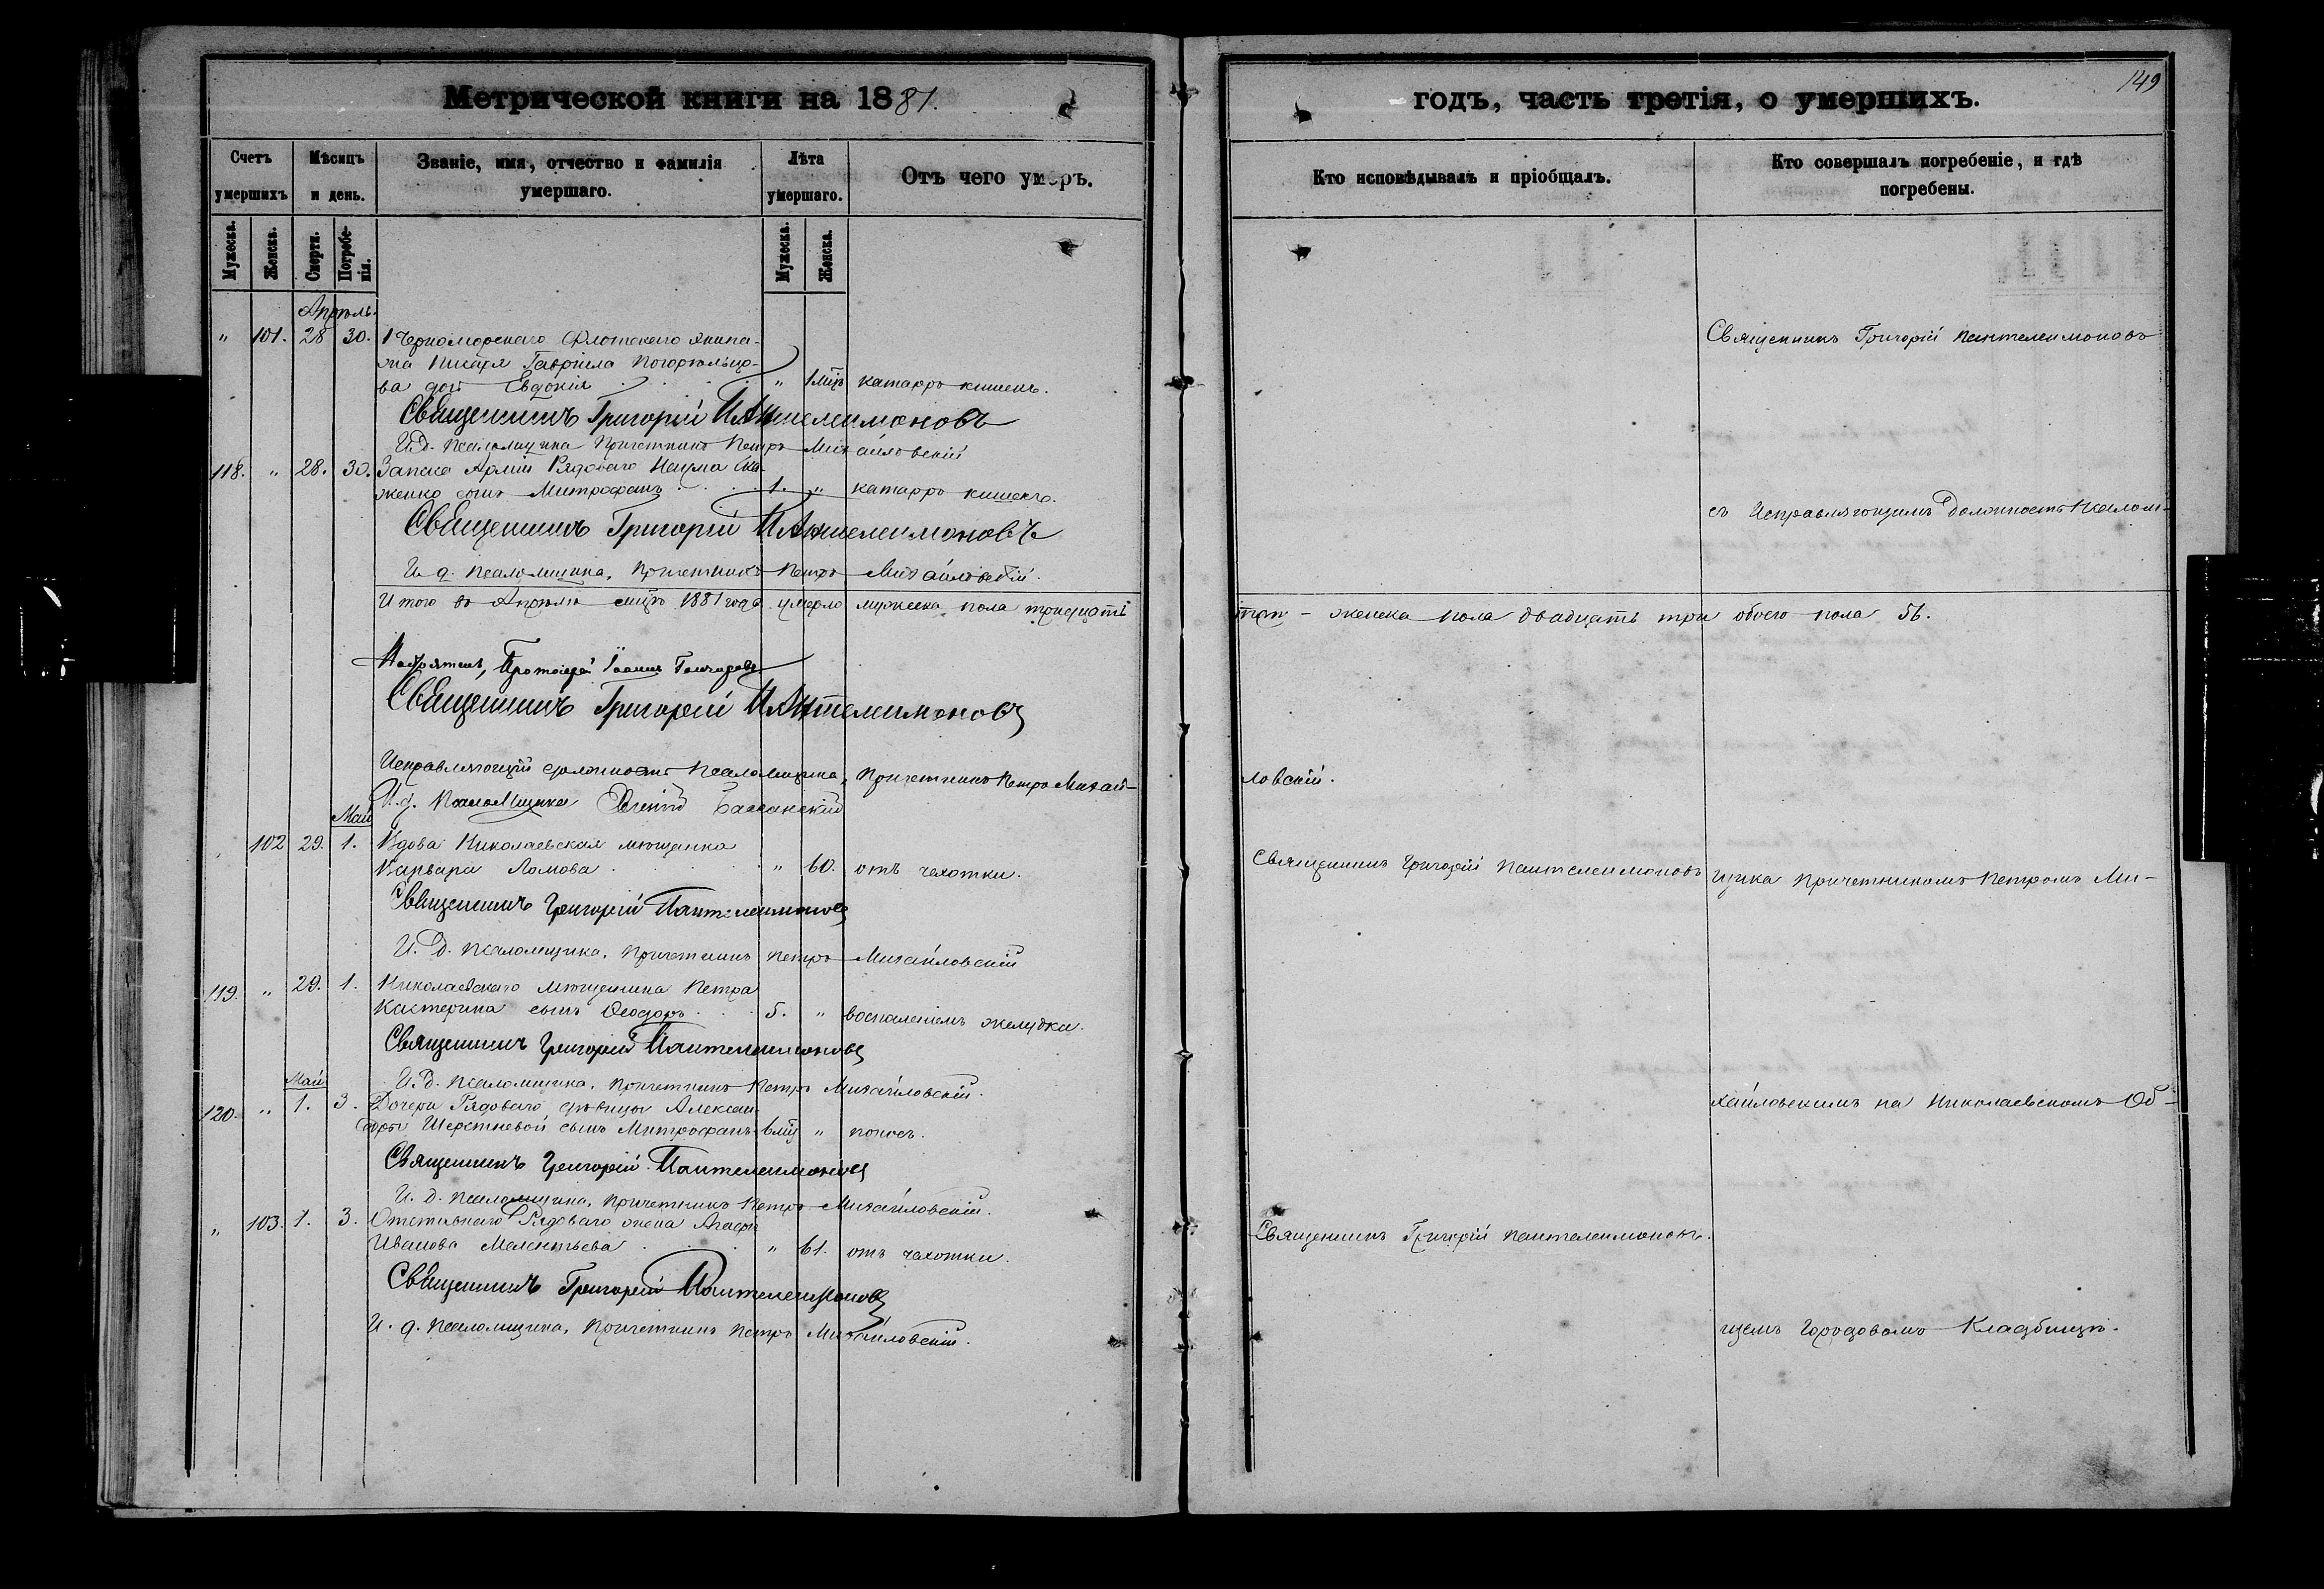 Метрической книги на 1881.
Счетъ умершихъ
Мѣсяцъ и день.
Званіе, имя, отчество и фамилія умершаго.
Лѣта умершаго.
Отъ чего умеръ.
Мужеска. Женска. Смерти. Погребенія. Мужеска. Женска.
Апрѣль.
" 101. 28 30. 1 Черноморскаго Флотскаго Экипа-
жа Писаря Гавріила Погорѣльцо-
ва дочь Евдокія " 1 мѣц катарръ кишекъ.
Священникъ Григорій Пантелеимоновъ
И. д. Псаломщика Причетникъ Петръ Михайловскій
118. " 28. 30. Запаса Арміи Рядоваго Наума
женко сынъ Митрофанъ 1. " катарръ кишекъ.
Священникъ Григорій Пантелеимоновъ
И. д. Псаломщика, Причетникъ Петръ Михайловскій.
Итого въ Апрѣлѣ мѣцѣ 1881 года умерло мужеска пола тридцать
Настоятель, Протоіерей Іоаннъ Гончаровъ
Священникъ Григорій Пантелеимоновъ
Исправляющій должность Псаломщика, Причетникъ Петръ Михай-
И. д. Псаломщика
Май
102 29. 1. Вдова Николаевская мѣщанка
Варвара Ломова " 60. отъ чахотки.
Священникъ Григорій Пантелеимоновъ
И. д. Псаломщика, Причетникъ Петръ Михайловскій
119. " 29. 1. Николаевскаго мѣщанина Петра
Кастерина сынъ Ѳеодоръ 5. " воспаленіемъ желудка.
Священникъ Григорій Пантелеимоновъ
И. д. Псаломщика, Причетникъ Петръ Михайловскій.
Май
120. " 1. 3. Дочери Рядоваго дѣвицы Алексан-
дры Шерстневой сынъ Митрофанъ 6 мѣц " поносъ.
Священникъ Григорій Пантелеимоновъ
И. д. Псаломщика, Причетникъ Петръ Михайловскій.
" 103. 1. 3. Отставнаго Рядоваго жена Агафія
Иванова Мелентьева " 61. отъ чахотки.
Священникъ Григорій Пантелеимоновъ
И. д. Псаломщика, Причетникъ Петръ Михайловскій.
149
годъ, часть третія, о умершихъ.
Кто исповѣдывалъ и пріобщалъ.
Кто совершалъ погребеніе, и гдѣ погребены.
Священникъ Григорій Пантелеимоновъ
съ Исправляющимъ Должность Псалом-
три - женска пола двадцать три обоего пола 56.
ловскій.
Священникъ Григорій Пантелеимоновъ
щика Причетникомъ Петромъ Ми-
хайловскимъ на Николаевскомъ Об-
Священникъ Григорій Пантелеимоновъ.
щемъ Городовомъ Кладбищѣ.